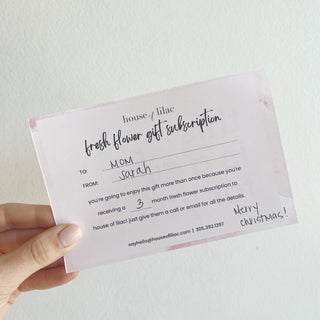 house of lilac
fresh flower gift subscription
TO: MOM
FROM: Sarah
you're going to enjoy this gift more than once because you're
receiving a 3 month fresh flower subscription to
house of lilac! just give them a call or email for all the details.
Merry
christmas!
sayhello@houseoflilac.com | 305.392.1297